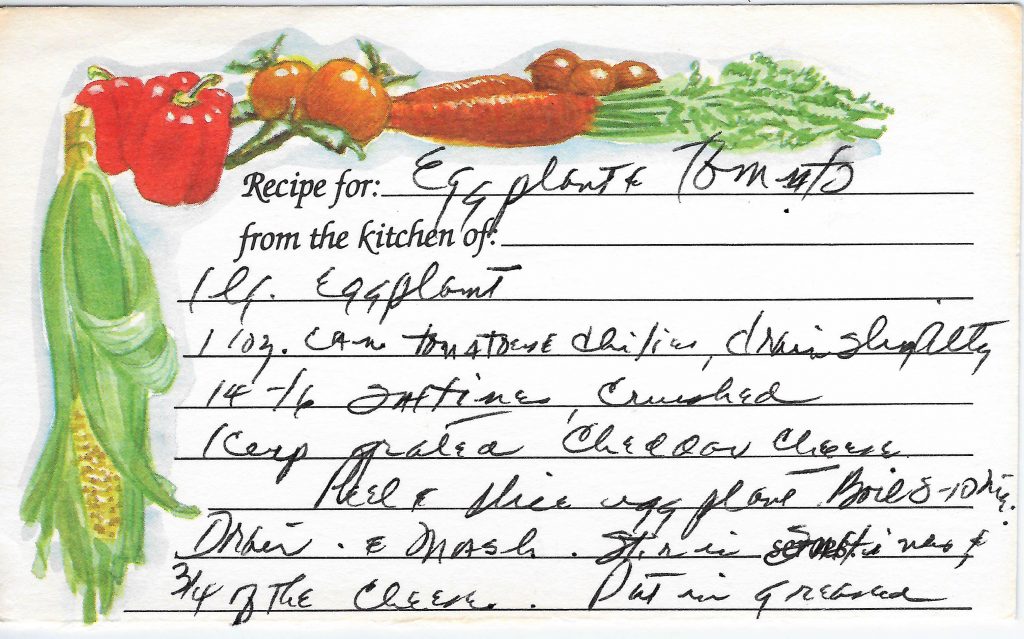 Recipe for: Eggplant & Tomato
from the kitchen of:
1 lg. Eggplant
1 10z. can tomatoes & chilies, drain slightly
14-16 saltines, crushed
1 cup grated Cheddar Cheese
Peel & slice eggplant Boil 8-10 min.
Drain. & Mash. Stir in saltines &
3/4 of the cheese. Put in greased